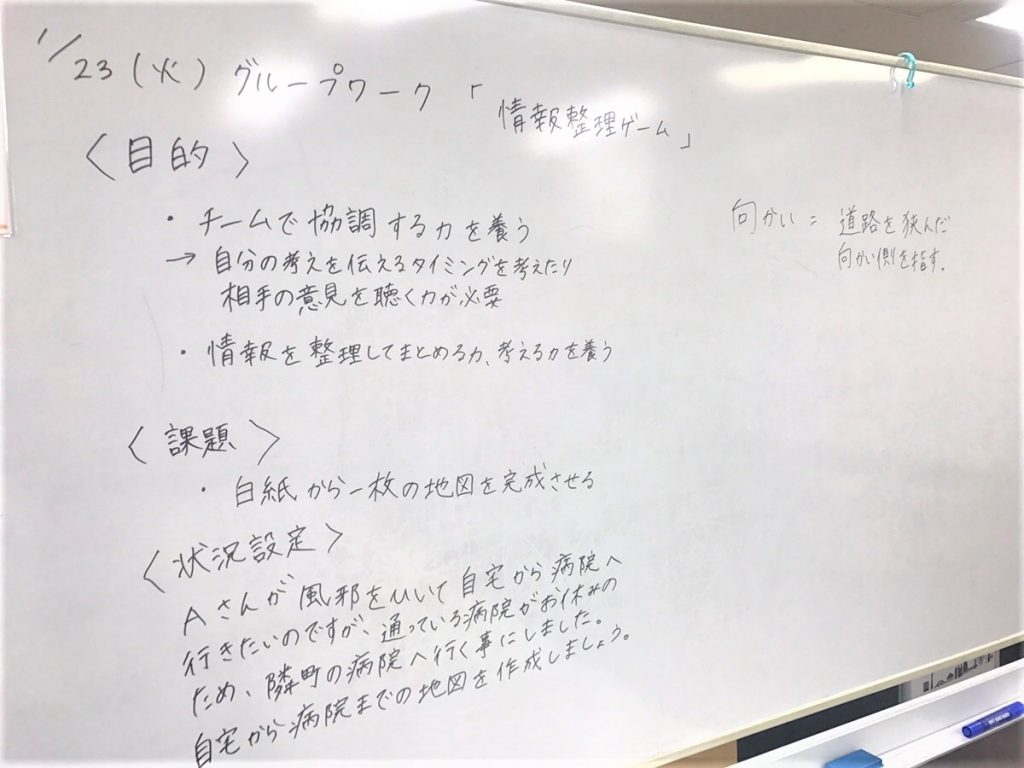 1/23(火) グループワーク「情報整理ゲーム」
〈目的〉
・チームで協調する力を養う
→ 自分の考えを伝えるタイミングを考えたり
相手の意見を聴く力が必要
・情報を整理してまとめる力、考える力を養う
向かい = 道路を狭んだ
向かい側を指す。
〈課題〉
・白紙から一枚の地図を完成させる
〈状況設定〉
Aさんが風邪をひいて自宅から病院へ
行きたいのですが、通っている病院がお休みの
ため、隣町の病院へ行く事にしました。
自宅から病院までの地図を作成しましょう。